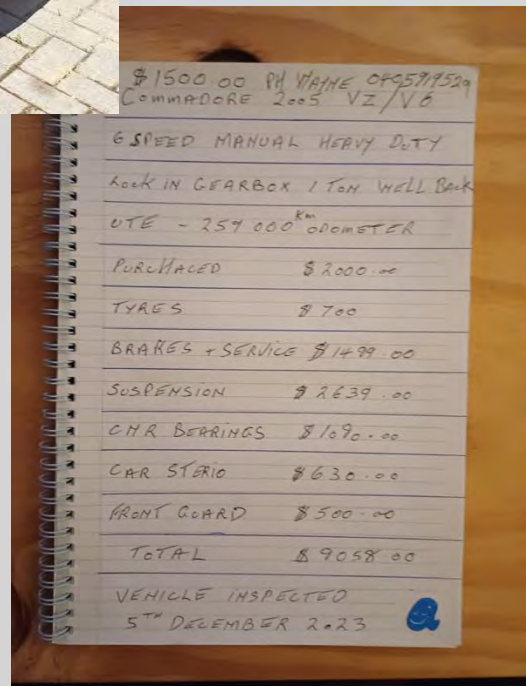 $1500.00 PH WAYNE 0405919529
COMMADORE 2005 VZ/V6
6 SPEED MANUAL HEAVY DUTY
LOCK IN GEARBOX 1 TON WELL BACK
UTE - 259 000 Km ODOMETER
PURCHACED $2000.00
TYRES $700
BRAKES + SERVICE $1499.00
SUSPENSION $2639.00
BEARINGS $1090.00
CAR STERIO $630.00
FRONT GUARD $500.00
TOTAL $9058 00
VEHICLE INSPECTED
5TH DECEMBER 2023